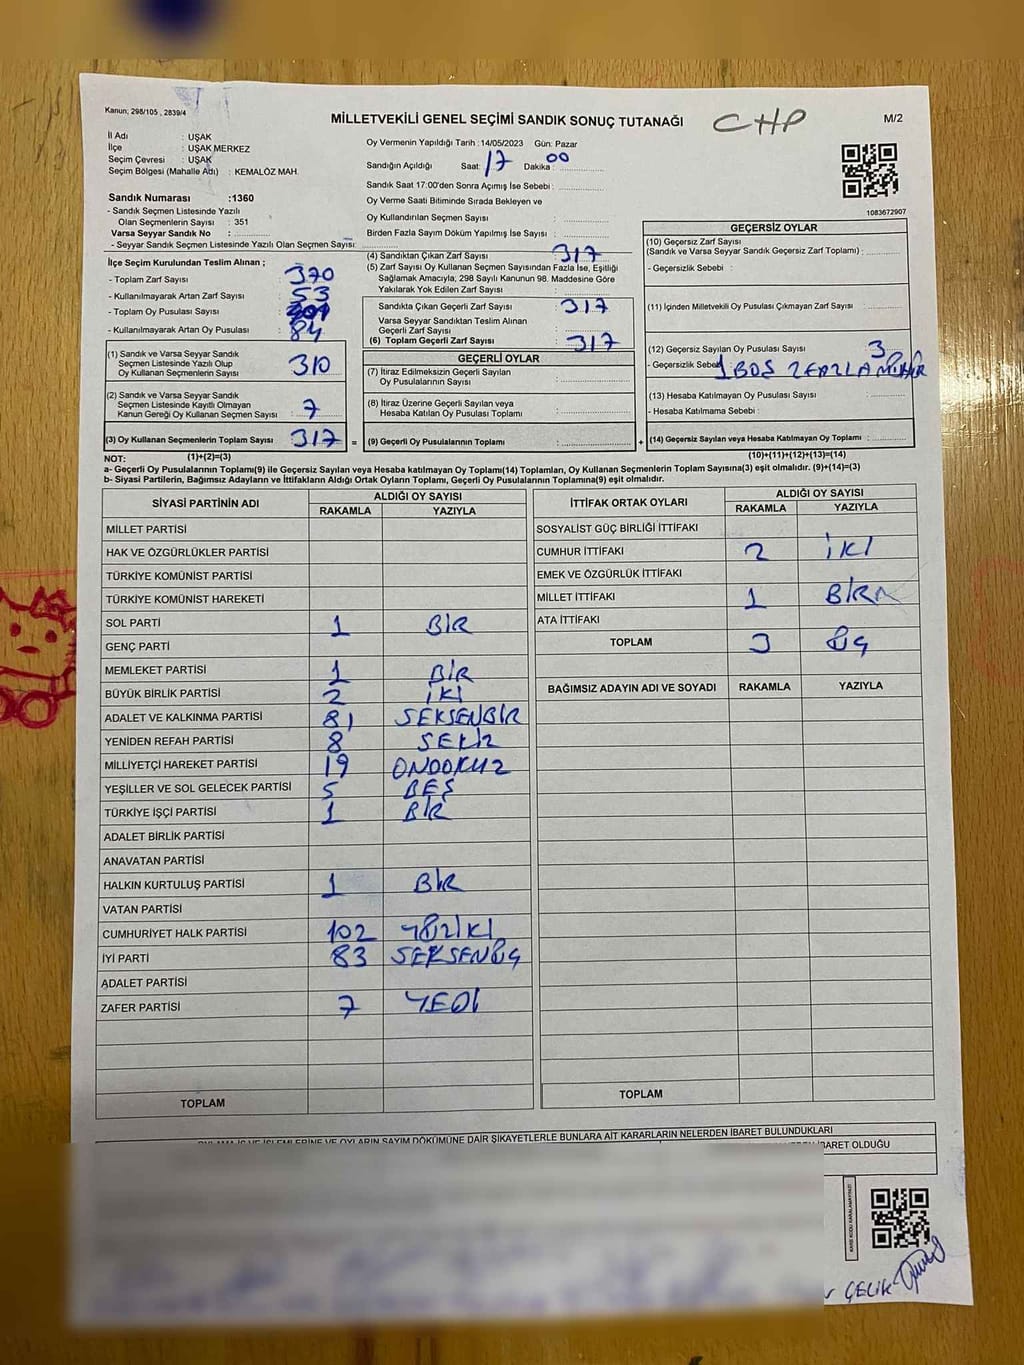 Kanun; 298/105 , 2839/4
MİLLETVEKİLİ GENEL SEÇİMİ SANDIK SONUÇ TUTANAĞI
CHP
M/2
İl Adı : UŞAK
İlçe : UŞAK MERKEZ
Seçim Çevresi : UŞAK
Seçim Bölgesi (Mahalle Adı) : KEMALÖZ MAH.
Sandık Numarası :1360
- Sandık Seçmen Listesinde Yazılı
Olan Seçmenlerin Sayısı : 351
Varsa Seyyar Sandık No :
- Seyyar Sandık Seçmen Listesinde Yazılı Olan Seçmen Sayısı:
Oy Vermenin Yapıldığı Tarih :14/05/2023 Gün: Pazar
Sandığın Açıldığı Saat: 17 Dakika : 00
Sandık Saat 17:00'den Sonra Açımış İse Sebebi :
Oy Verme Saati Bitiminde Sırada Bekleyen ve
Oy Kullandırılan Seçmen Sayısı :
Birden Fazla Sayım Döküm Yapılmış İse Sayısı :
1083672907
İlçe Seçim Kurulundan Teslim Alınan ;
- Toplam Zarf Sayısı : 370
- Kullanılmayarak Artan Zarf Sayısı : 53
- Toplam Oy Pusulası Sayısı :
- Kullanılmayarak Artan Oy Pusulası : 84
(1) Sandık ve Varsa Seyyar Sandık
Seçmen Listesinde Yazılı Olup
Oy Kullanan Seçmenlerin Sayısı : 310
(2) Sandık ve Varsa Seyyar Sandık
Seçmen Listesinde Kayıtlı Olmayan
Kanun Gereği Oy Kullanan Seçmen Sayısı : 7
(3) Oy Kullanan Seçmenlerin Toplam Sayısı : 317 =
(4) Sandıktan Çıkan Zarf Sayısı : 317
(5) Zarf Sayısı Oy Kullanan Seçmen Sayısından Fazla İse, Eşitliği
Sağlamak Amacıyla; 298 Sayılı Kanunun 98. Maddesine Göre
Yakılarak Yok Edilen Zarf Sayısı :
Sandıkta Çıkan Geçerli Zarf Sayısı : 317
Varsa Seyyar Sandıktan Teslim Alınan
Geçerli Zarf Sayısı :
(6) Toplam Geçerli Zarf Sayısı : 317
GEÇERLİ OYLAR
(7) İtiraz Edilmeksizin Geçerli Sayılan
Oy Pusulalarının Sayısı :
(8) İtiraz Üzerine Geçerli Sayılan veya
Hesaba Katılan Oy Pusulası Toplamı :
(9) Geçerli Oy Pusulalarının Toplamı : +
GEÇERSİZ OYLAR
(10) Geçersiz Zarf Sayısı
(Sandık ve Varsa Seyyar Sandık Geçersiz Zarf Toplamı) :
- Geçersizlik Sebebi :
(11) İçinden Milletvekili Oy Pusulası Çıkmayan Zarf Sayısı :
(12) Geçersiz Sayılan Oy Pusulası Sayısı 3
- Geçersizlik Sebebi 1 BOŞ 2 FAZLA MÜHÜR
(13) Hesaba Katılmayan Oy Pusulası Sayısı :
- Hesaba Katılmama Sebebi :
(14) Geçersiz Sayılan veya Hesaba Katılmayan Oy Toplamı :
NOT: (1)+(2)=(3) (10)+(11)+(12)+(13)=(14)
a- Geçerli Oy Pusulalarının Toplamı(9) ile Geçersiz Sayılan veya Hesaba katılmayan Oy Toplamı(14) Toplamları, Oy Kullanan Seçmenlerin Toplam Sayısına(3) eşit olmalıdır. (9)+(14)=(3)
b- Siyasi Partilerin, Bağımsız Adayların ve İttifakların Aldığı Ortak Oyların Toplamı, Geçerli Oy Pusulalarının Toplamına(9) eşit olmalıdır.
SİYASİ PARTİNİN ADI ALDIĞI OY SAYISI
RAKAMLA YAZIYLA
MİLLET PARTİSİ
HAK VE ÖZGÜRLÜKLER PARTİSİ
TÜRKİYE KOMÜNİST PARTİSİ
TÜRKİYE KOMÜNİST HAREKETİ
SOL PARTİ 1 BİR
GENÇ PARTİ
MEMLEKET PARTİSİ 1 BİR
BÜYÜK BİRLİK PARTİSİ 2 İKİ
ADALET VE KALKINMA PARTİSİ 81 SEKSENBİR
YENİDEN REFAH PARTİSİ 8 SEKİZ
MİLLİYETÇİ HAREKET PARTİSİ 19 ONDOKUZ
YEŞİLLER VE SOL GELECEK PARTİSİ 5 BEŞ
TÜRKİYE İŞÇİ PARTİSİ 1 BİR
ADALET BİRLİK PARTİSİ
ANAVATAN PARTİSİ
HALKIN KURTULUŞ PARTİSİ 1 BİR
VATAN PARTİSİ
CUMHURİYET HALK PARTİSİ 102 YÜZİKİ
İYİ PARTİ 83 SEKSENÜÇ
ADALET PARTİSİ
ZAFER PARTİSİ 7 YEDİ
TOPLAM
İTTİFAK ORTAK OYLARI ALDIĞI OY SAYISI
RAKAMLA YAZIYLA
SOSYALİST GÜÇ BİRLİĞİ İTTİFAKI
CUMHUR İTTİFAKI 2 İKİ
EMEK VE ÖZGÜRLÜK İTTİFAKI
MİLLET İTTİFAKI 1 BİR
ATA İTTİFAKI
TOPLAM 3 ÜÇ
BAĞIMSIZ ADAYIN ADI VE SOYADI RAKAMLA YAZIYLA
TOPLAM
OYLAMA İŞ VE İŞLEMLERİNE VE OYLARIN SAYIM DÖKÜMÜNE DAİR ŞİKAYETLERLE BUNLARA AİT KARARLARIN NELERDEN İBARET BULUNDUKLARI
İBARET OLDUĞU
KARE KODU KARALAMAYINIZ!
ÇELİK